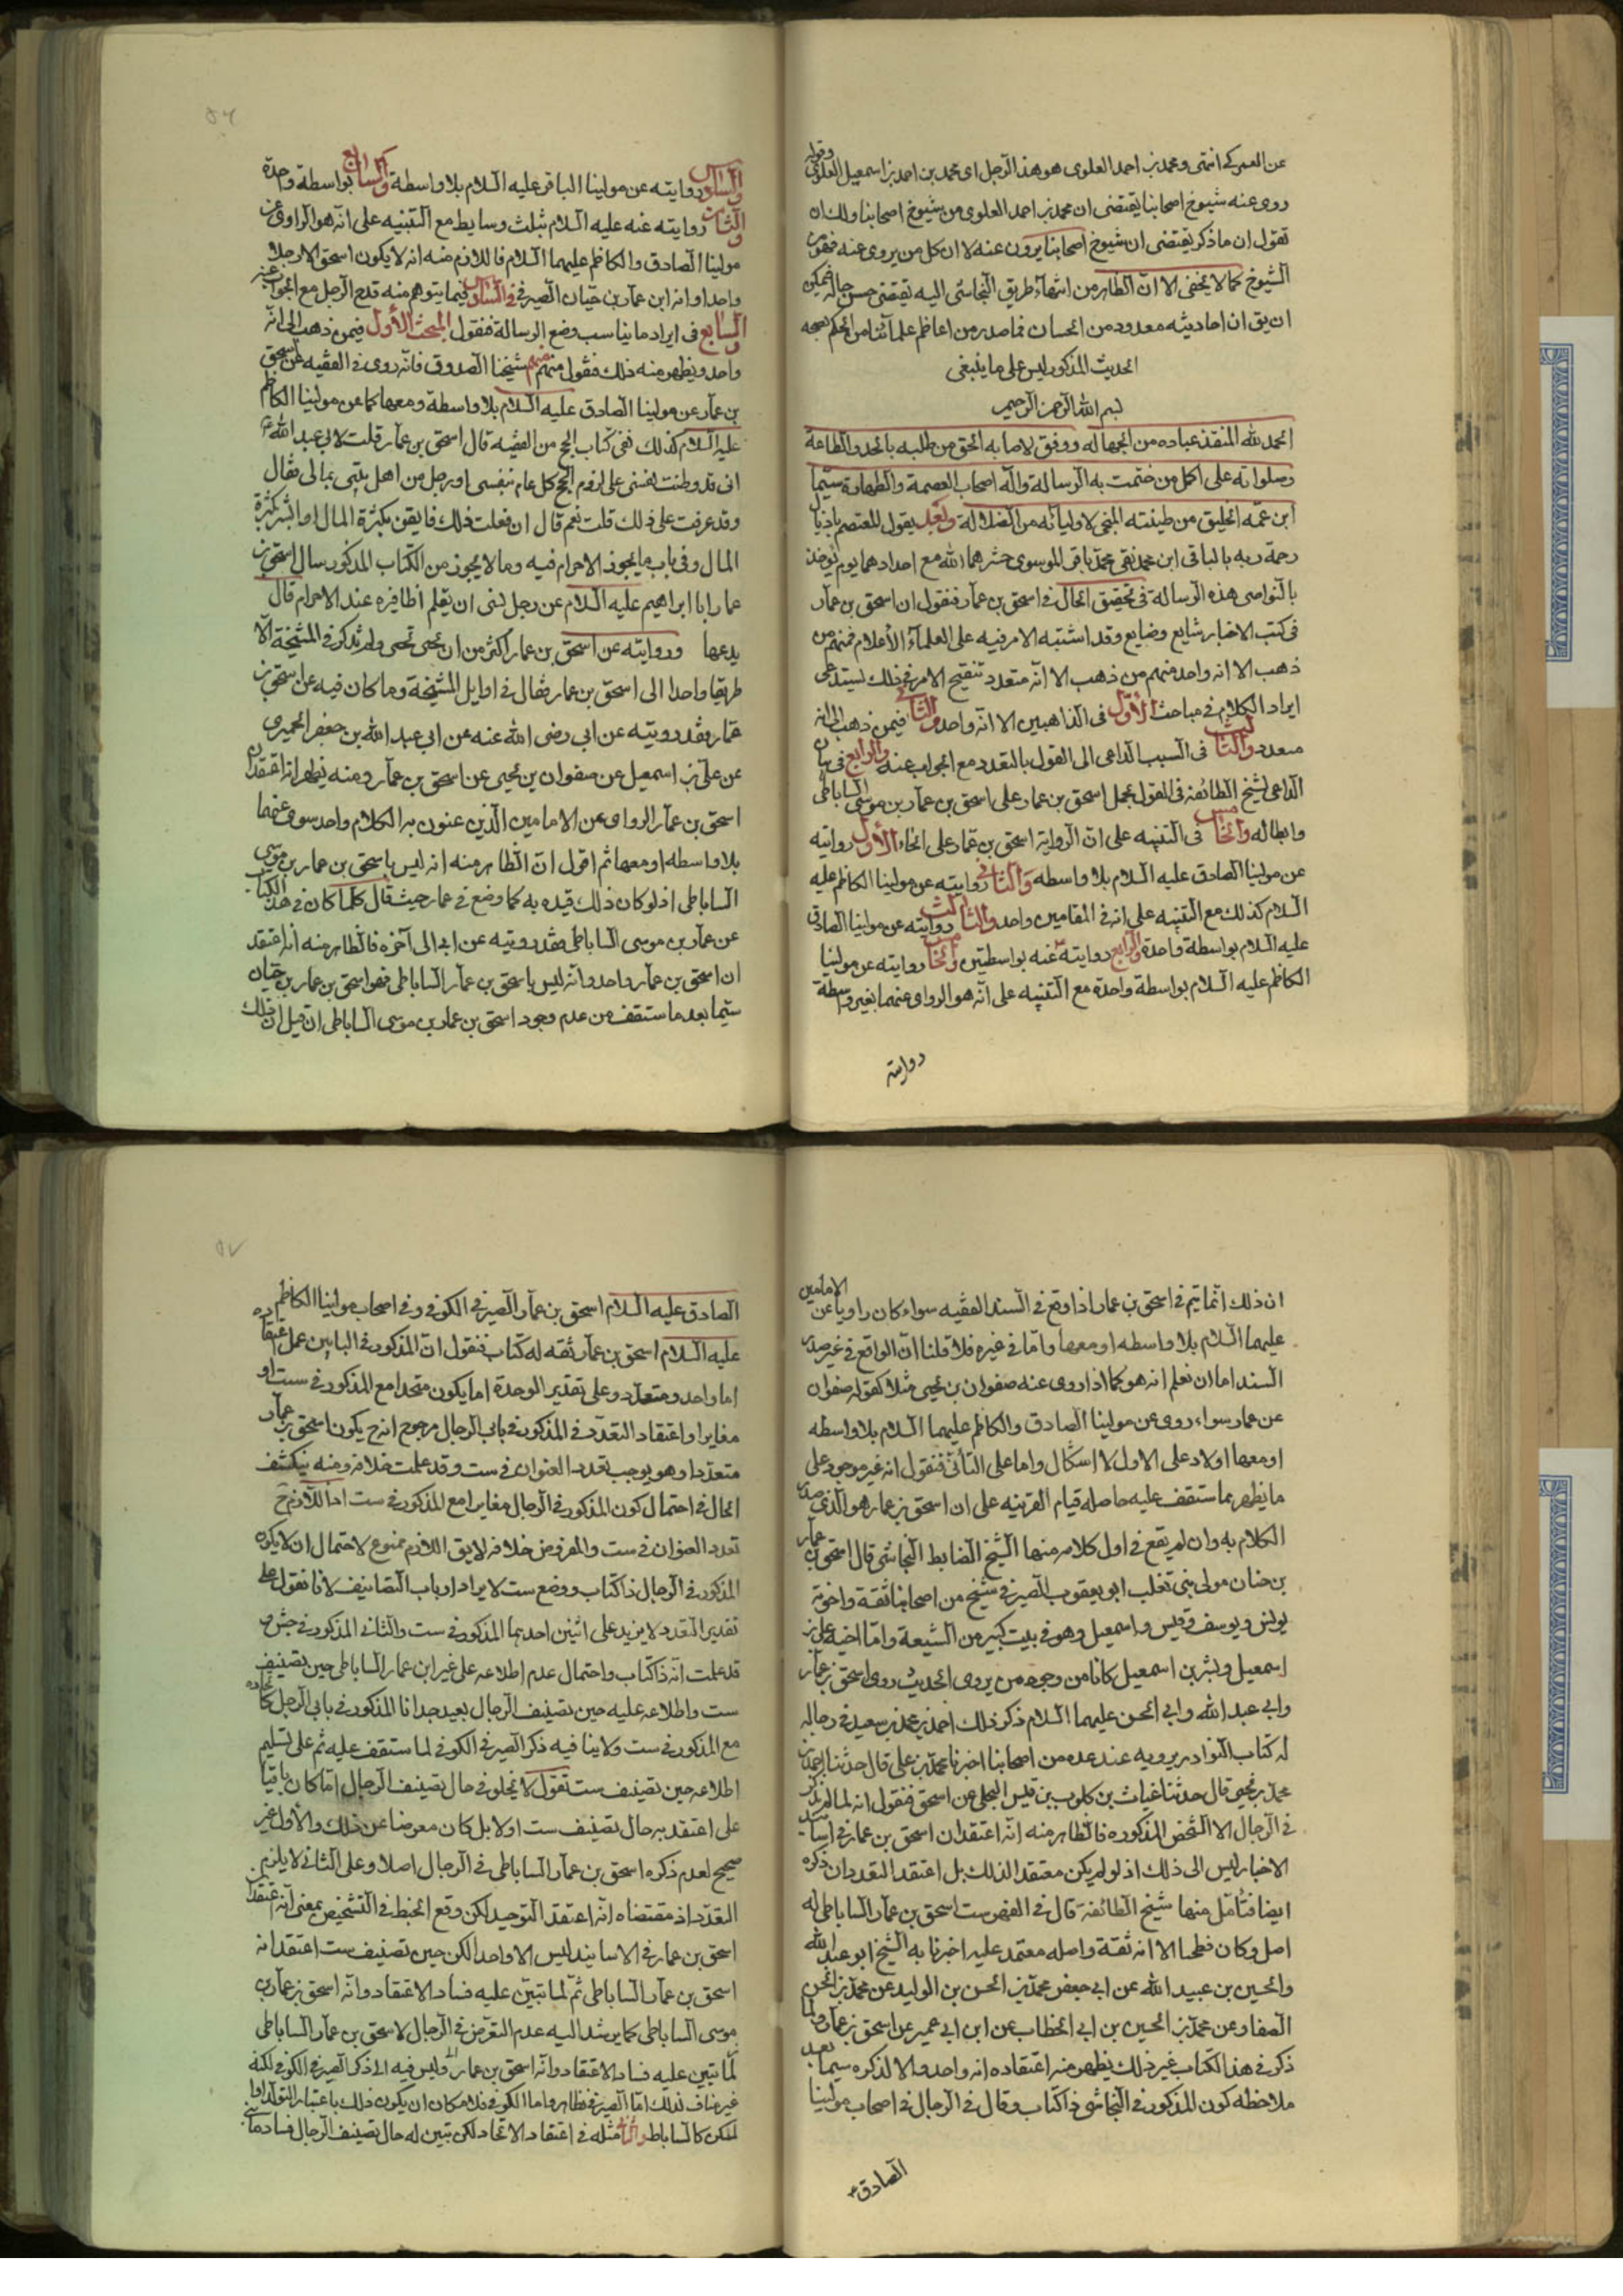 عن العمركى انتهى ومحمد بن احمد العلوى هو هذا الرجل اى محمد بن احمد بن اسمعيل العلوى وقوله
روى عنه شيوخ اصحابنا يقتضى ان محمد بن احمد العلوى من شيوخ اصحابنا ولك ان
تقول ان ما ذكر يقتضى ان شيوخ اصحابنا يروون عنه لا ان كل من يروى عنه فهو من
الشيوخ كما لا يخفى الا ان الظاهر من انتهاء طريق النجاشى اليه يقتضى حسن حاله فيمكن
ان يق ان احاديثه معدودة من الحسان فما صدر من اعاظم علمائنا من الحكم بصحة
الحديث المذكور ليس على ما ينبغى
بسم الله الرحمن الرحيم
الحمد لله المنقذ عباده من الجهالة ووفق لاصابة الحق من طلبه بالجد والطاعة
وصلواته على اكمل من ختمت به الرسالة واله اصحاب العصمة والطهارة سيما
ابن عمه الخليق من طينته المنجى لاوليائه من الضلالة وبعد يقول المعتصم باذيال
رحمة ربه الباقى ابن محمد نقى محمد باقر الموسوى حشرهما الله مع اجدادهما يوم يؤخذ
بالنواصى هذه الرسالة فى تحقيق الحال فى اسحق بن عمار فنقول ان اسحق بن عمار
فى كتب الاخبار شايع وضايع وقد اشتبه الامر فيه على العلماء الأعلام فمنهم من
ذهب الا انه واحد ومنهم من ذهب الا انه متعدد تنقيح الامر فى ذلك يستدعى
ايراد الكلام فى مباحث الأول فى الذاهبين الا انه واحد والثانى فيمن ذهب الى انه
متعدد والثالث فى السبب الداعى الى القول بالتعدد مع الجواب عنه والرابع فى بيان
الداعى لشيخ الطائفة فى القول بحمل اسحق بن عمار على اسحق بن عمار بن موسى الساباطى
وابطاله والخامس فى التنبيه على ان الرواية اسحق بن عمار على انحاء الأول روايته
عن مولينا الصادق عليه السلام بلا واسطة والثانى روايته عن مولينا الكاظم عليه
السلام كذلك مع التنبيه على انه فى المقامين واحد والثالث روايته عن مولينا الصادق
عليه السلام بواسطة واحدة والرابع روايته عنه بواسطتين والخامس روايته عن مولينا
الكاظم عليه السلام بواسطة واحدة مع التنبيه على انه هو الراوى عنهما بغير واسطة
روايته
٥٦
والسادس روايته عن مولينا الباقر عليه السلام بلا واسطة والسابع بواسطة واحدة
والثامن روايته عنه عليه السلام بثلث وسايط مع التنبيه على انه هو الراوى عن
مولينا الصادق والكاظم عليهما السلام فاللازم منه انه لا يكون اسحق الا رجلا
واحدا وانه ابن عمار بن حيان الصيرفى والسادس فيما يتوهم منه قدح الرجل مع الجواب عنه
والسابع فى ايراد ما يناسب وضع الرسالة فنقول المبحث الأول فيمن ذهب الى انه
واحد ويظهر منه ذلك فنقول منهم شيخنا الصدوق فانه روى فى الفقيه عن اسحق
بن عمار عن مولينا الصادق عليه السلام بلا واسطة ومعها كما عن مولينا الكاظم
عليه السلام كذلك ففى كتاب الحج من الفقيه قال اسحق بن عمار قلت لابى عبد الله ع
انى قد وطنت نفسى على لزوم الحج كل عام بنفسى او برجل من اهل بيتى بمالى فقال
وقد عزمت على ذلك قلت نعم قال ان فعلت ذلك فايقن بكثرة المال او ابشر بكثرة
المال وفى باب ما يجوز الاحرام فيه وما لا يجوز من الكتاب المذكور سال اسحق بن
عمار ابا ابراهيم عليه السلام عن رجل نسى ان يقلم اظافيره عند الاحرام قال
يدعها وروايته عن اسحق بن عمار اكثر من ان يحصى ولم يذكر فى المشيخة الا
طريقا واحدا الى اسحق بن عمار فقال فى اوايل المشيخة وما كان فيه عن اسحق بن
عمار فقد رويته عن ابى رضى الله عنه عن ابى عبد الله بن جعفر الحميرى
عن على بن اسمعيل عن صفوان بن يحيى عن اسحق بن عمار ومنه يظهر انه اعتقد ان
اسحق بن عمار الراوى عن الامامين الذين عنون به الكلام واحد سوى عنهما
بلا واسطه او معها ثم اقول ان الظاهر منه انه ليس باسحق بن عمار بن موسى
الساباطى اذ لو كان ذلك قيده به كما وضع فى عمار حيث قال كلما كان فى هذا الكتاب
عن عمار بن موسى الساباطى فقد رويته عن ابى الى آخره فالظاهر منه انه اعتقد
ان اسحق بن عمار واحد وانه ليس باسحق بن عمار الساباطى فهو اسحق بن عمار بن حيان
سيما بعد ما ستقف من عدم وجود اسحق بن عمار بن موسى الساباطى ان قيل ان ذلك
ان ذلك انما يتم فى اسحق بن عمار اذا وقع فى السند الفقيه سواء كان راويا عن الامامين
عليهما السلام بلا واسطه او معها واما فى غيره فلا قلنا ان الواقع فى غير صدر
السند اما ان نعلم انه هو كما اذا روى عنه صفوان بن يحيى مثلا كقوله صفوان
عن عمار سواء روى عن مولينا الصادق والكاظم عليهما السلام بلا واسطه
او معها اولا وعلى الاول لا اشكال واما على الثانى فنقول انه غير موجود على
ما يظهر مما ستقف عليه حاصله قيام القرينه على ان اسحق بن عمار هو الذى صدر
الكلام به وان لم يقع فى اول كلامه منها الشيخ الضابط النجاشى قال اسحق بن عمار
بن حنان مولى بنى تغلب ابو يعقوب الصيرفى شيخ من اصحابنا ثقة واخوته
يونس ويوسف وقيس واسمعيل وهو فى بيت كبير من الشيعة واما اخيه على بن
اسمعيل وبشر بن اسمعيل كانا من وجوه من يروى الحديث روى اسحق بن عمار
وابى عبد الله وابى الحسن عليهما السلام ذكر ذلك احمد بن محمد بن سعيد فى رجاله
له كتاب النوادر يرويه عنه عده من اصحابنا اخبرنا محمد بن على قال حدثنا احمد بن
محمد بن يحيى قال حدثنا غياث بن كلوب بن قيس البجلى عن اسحق فنقول انه لما لم يذكر
فى الرجال الا الشخص المذكوره فالظاهر منه انه اعتقد ان اسحق بن عمار فى اسانيد
الاخبار ليس الى ذلك اذ لو لم يكن معتقدا لذلك بل اعتقد التعدد ان ذكره
ايضا فتأمل منها شيخ الطائفة قال فى الفهرست اسحق بن عمار الساباطى له
اصل وكان فطحيا الا انه ثقة واصله معتمد عليه اخبرنا به الشيخ ابو عبد الله
والحسين بن عبيد الله عن ابى جعفر محمد بن الحسن بن الوليد عن محمد بن الحسن
الصفار وعن محمد بن الحسين بن ابى الخطاب عن ابن ابى عمير عن اسحق بن عمار ولما
ذكر فى هذا الكتاب غير ذلك يظهر منه اعتقاده انه واحد والا لذكره سيما بعد
ملاحظه كون المذكور فى النجاشى ذا كتاب وقال فى الرجال فى اصحاب مولينا
الصادق ع
٥٧
الصادق عليه السلام اسحق بن عمار الصيرفى الكوفى وفى اصحاب مولينا الكاظم
عليه السلام اسحق بن عمار ثقه له كتاب فنقول ان المذكور فى البابين
اما واحد ومتعدد وعلى تقدير الوحدة اما يكون متحدا مع المذكور فى ست او
مغايرا واعتقاد التعدد فى المذكور فى بابى الرجال مرجوح اذ ح يكون اسحق بن عمار
متعددا وهو يوجب تعدد العنوان فى ست وقد علمت خلافه ومنه ينكشف
الحال فى احتمال كون المذكور فى الرجال مغايرا مع المذكور فى ست اذ اللازم ح
تعدد العنوان فى ست والمفروض خلافه لا يق اللازم ممنوع لاحتمال ان لا يكون
المذكور فى الرجال ذا كتاب ووضع ست لايراد ارباب التصانيف لانا نقول على
تقدير التعدد لا يزيد على اثنين احدهما المذكور فى ست والثانى المذكور فى جش وقد
قد علمت انه ذا كتاب واحتمال عدم اطلاعه على غير ابن عمار الساباطى حين تصنيف
ست واطلاعه عليه حين تصنيف الرجال بعيد جدا فالمذكور فى بابى الرجل
مع المذكور فى ست ولا ينافيه ذكر الصيرفى الكوفى لما ستقف عليه ثم على تسليم
اطلاعه حين تصنيف ست نقول لا يخلو فى حال تصنيف الرجال اما كان باقيا
على اعتقد به حال تصنيف ست اولا بل كان معرضا عن ذلك والأول غير
صحيح لعدم ذكره اسحق بن عمار الساباطى فى الرجال اصلا وعلى الثانى لا يلزم
التعدد اذ مقتضاه انه اعتقد التوحيد لكن وقع الخبط فى التشخيص بمعنى انه اعتقد ان
اسحق بن عمار فى الاسانيد ليس الا واحدا لكن حين تصنيف ست اعتقد انه
اسحق بن عمار الساباطى ثم لما تبين عليه فساد الاعتقاد وانه اسحق بن عمار بن
موسى الساباطى كما يرشد اليه عدم التعرض فى الرجال لاسحق بن عمار الساباطى
لما تبين عليه فساد الاعتقاد وانه اسحق بن عمار وليس فيه الا ذكر الصيرفى الكوفى لكنه
غير مناف لذلك اما الصيرفى فظاهر واما الكوفى فلامكان ان يكون ذلك باعتبار التولد او
المسكن كالساباطى مثله فى اعتقاد الاتحاد لكن تبين له حال تصنيف الرجال فساد